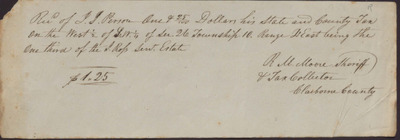 Recd of J. J. Ross One & 25/100 Dollars his State and County Tax
on the West ½ of S.W. ¼ of Sec 26 Township 10 Range 2 East being the
One third of the I. Ross Senr Estate
R. M. Moore Sheriff
$1.25
& Tax Collector
Claiborne County